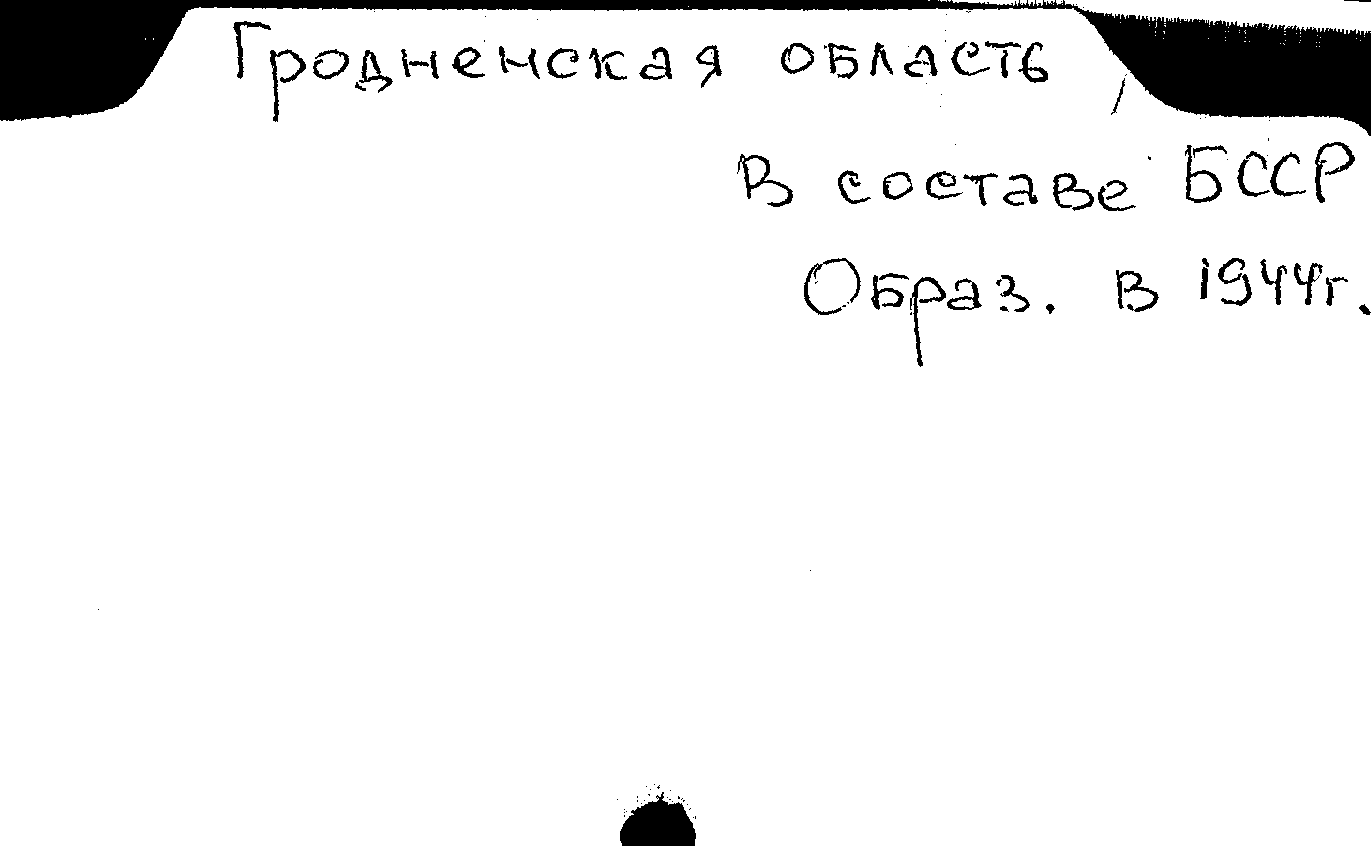 Гродненская область
В составе БССР
Образ. в 1944г.